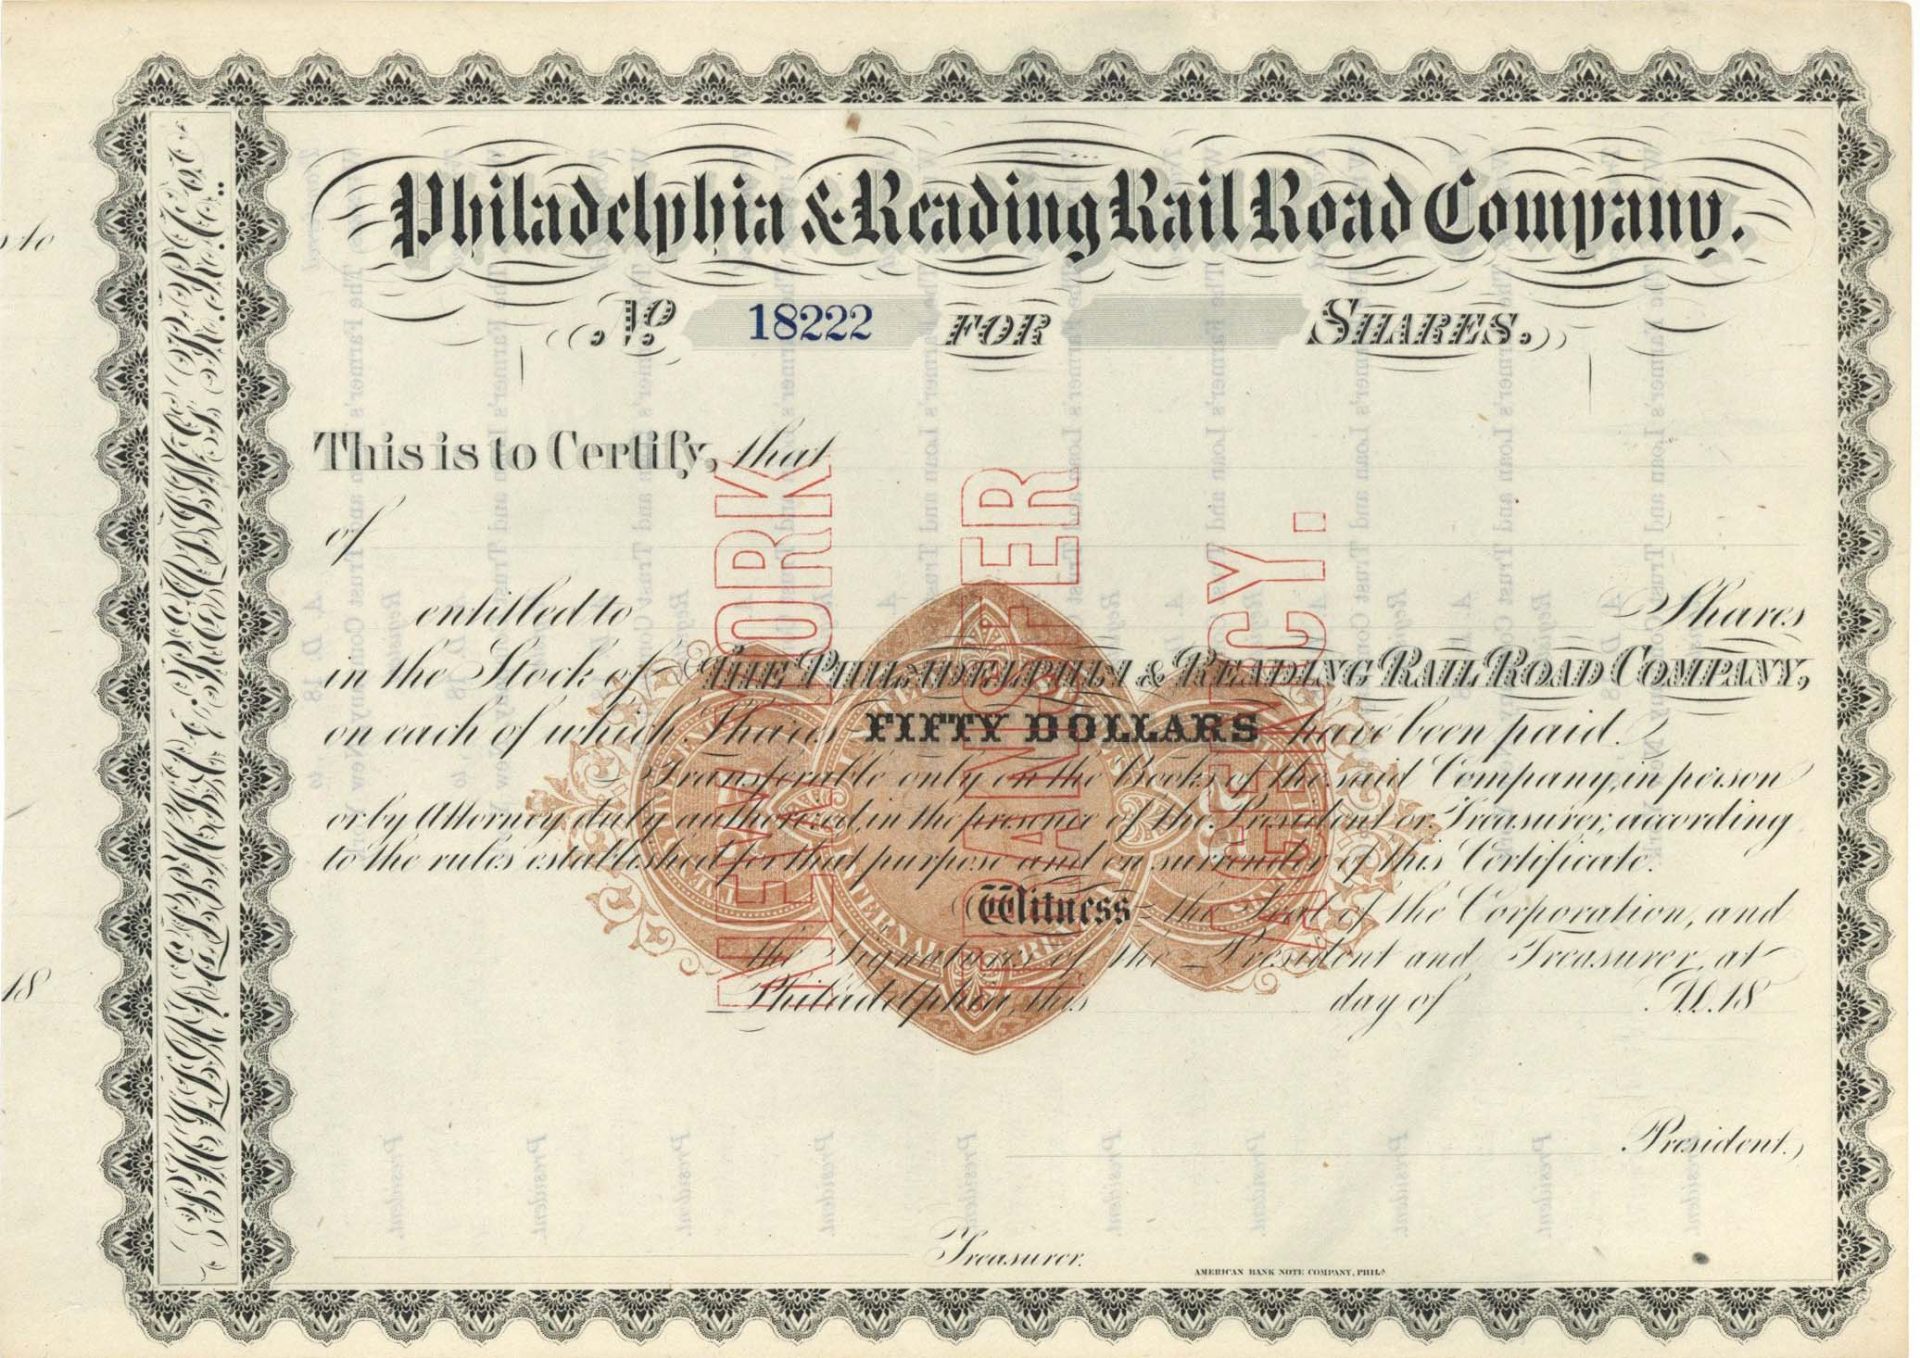 Philadelphia & Reading Rail Road Company.
No 18222 FOR SHARES.
This is to Certify, that
of
entitled to Shares
in the Stock of THE PHILADELPHIA & READING RAIL ROAD COMPANY,
on each of which Shares FIFTY DOLLARS have been paid.
Transferable only on the Books of the said Company, in person
or by Attorney duly authorized, in the presence of the President or Treasurer, according
to the rules established for that purpose and on surrender of this Certificate.
Witness the Seal of the Corporation, and
the Signatures of the President and Treasurer, at
Philadelphia, this day of A.D. 18
President.
Treasurer.
AMERICAN BANK NOTE COMPANY, PHILA
NEW YORK
TRANSFER
AGENCY.
PHILADELPHIA & READING R.R. Co.
to
18